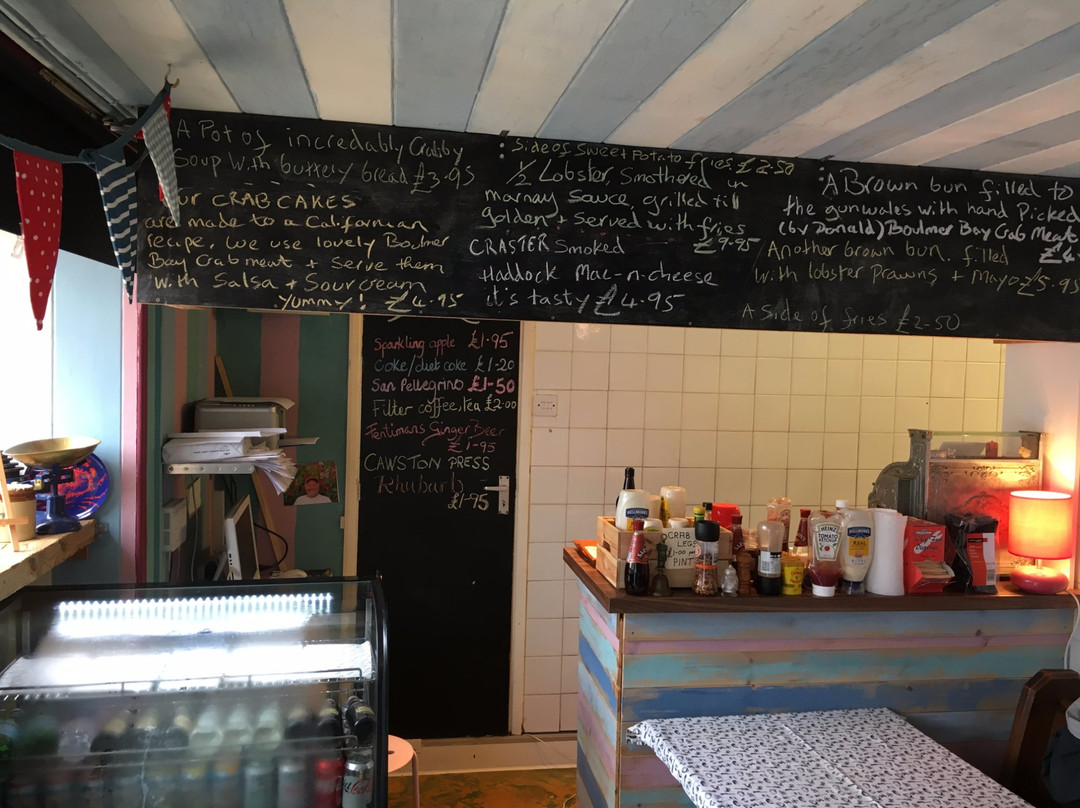 A Pot of incredably Crabby
Soup with buttery bread £3.95
our CRAB CAKES
are made to a Californian
recipe, we use lovely Boulmer
Bay Crabmeat + Serve them
with Salsa + Sour cream
Yummy! £4.95
: Side of Sweet Potato fries £2.50
½ Lobster, Smothered in
marnay Sauce, grilled till
golden + Served with fries
£9.95
CRASTER Smoked
Haddock Mac-n-cheese
it's tasty £4.95
:A Brown bun filled to
the gunwales with hand Picked
(by Donald) Boulmer Bay Crab Meat
£4.
Another brown bun, filled
with lobster Prawns + Mayo £5.95
A Side of fries £2-50
Sparkling apple £1.95
Coke/diet coke £1-20
San Pellegrino £1-50
Filter coffee, tea £2.00
Fentimans Ginger Beer
£1-95
CAWSTON PRESS
Rhubarb
£1-95
CRAB
LEGS
1-00
PINT
HELLMANN'S
HEINZ
TOMATO
KETCHUP
HELLMANN'S
REAL